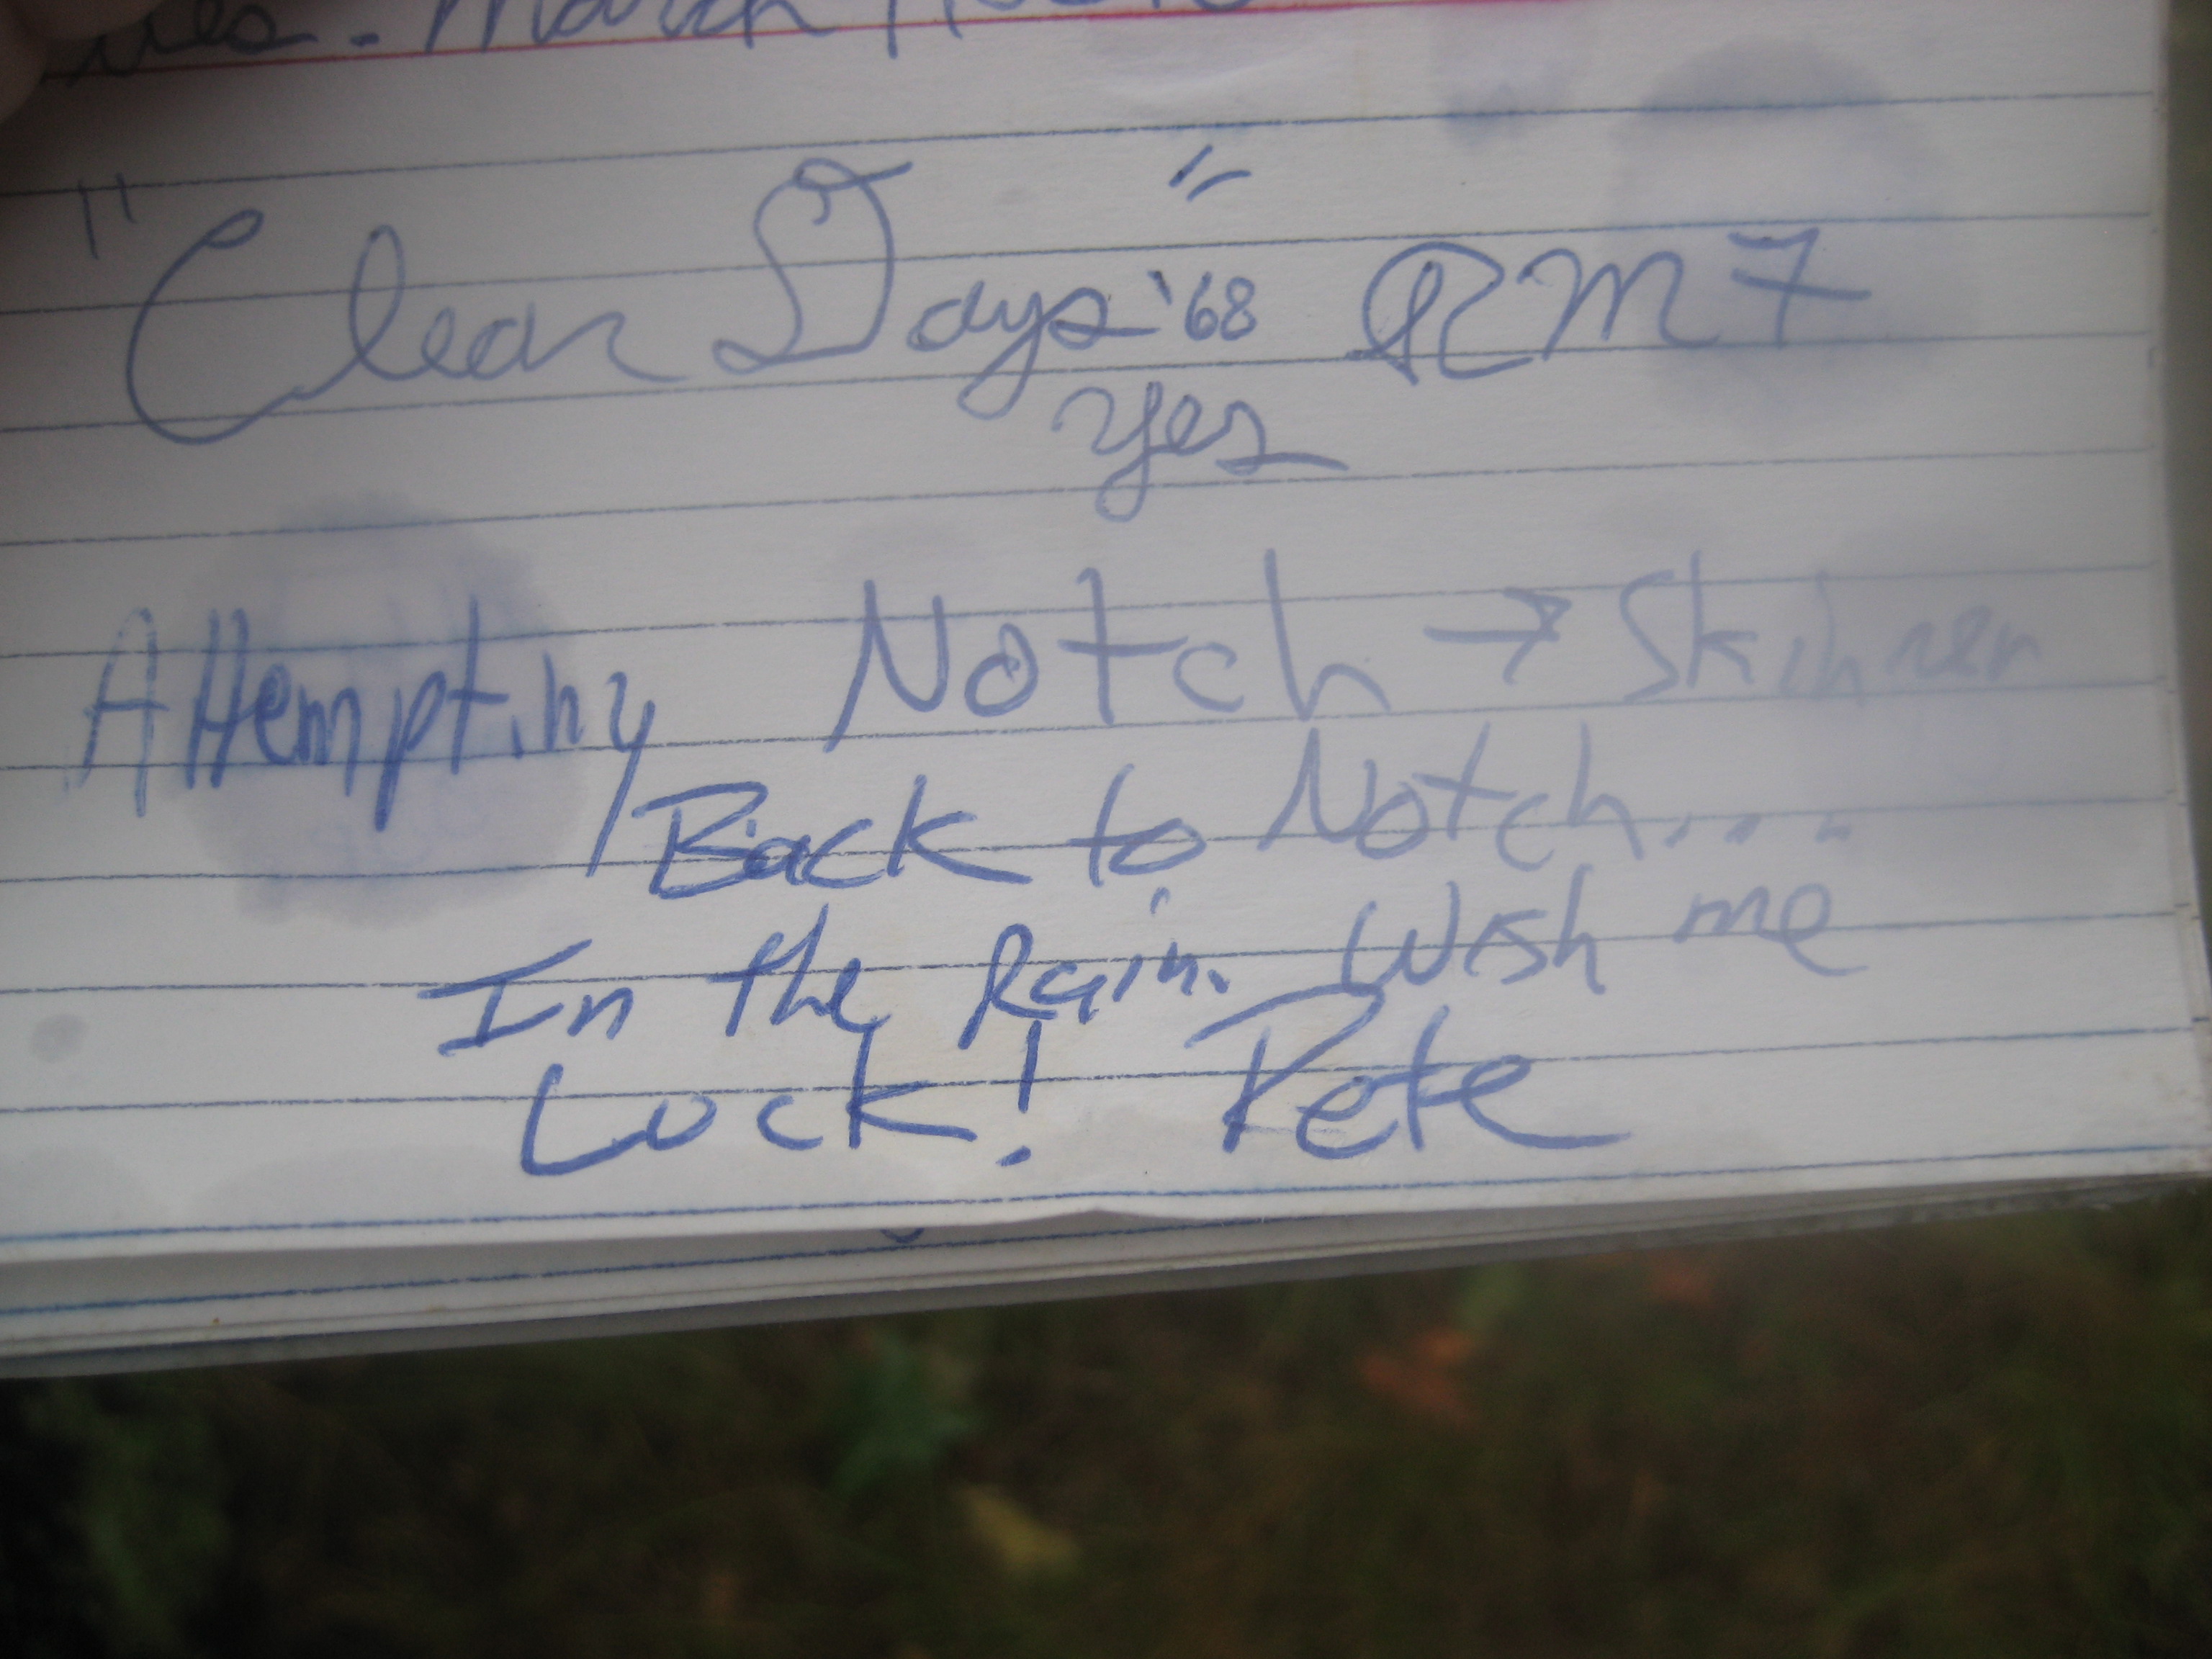 "Clear Days '68" RM7
yes
Attempting Notch → Skinner
Back to Notch....
In the Rain. Wish me
Luck! Pete